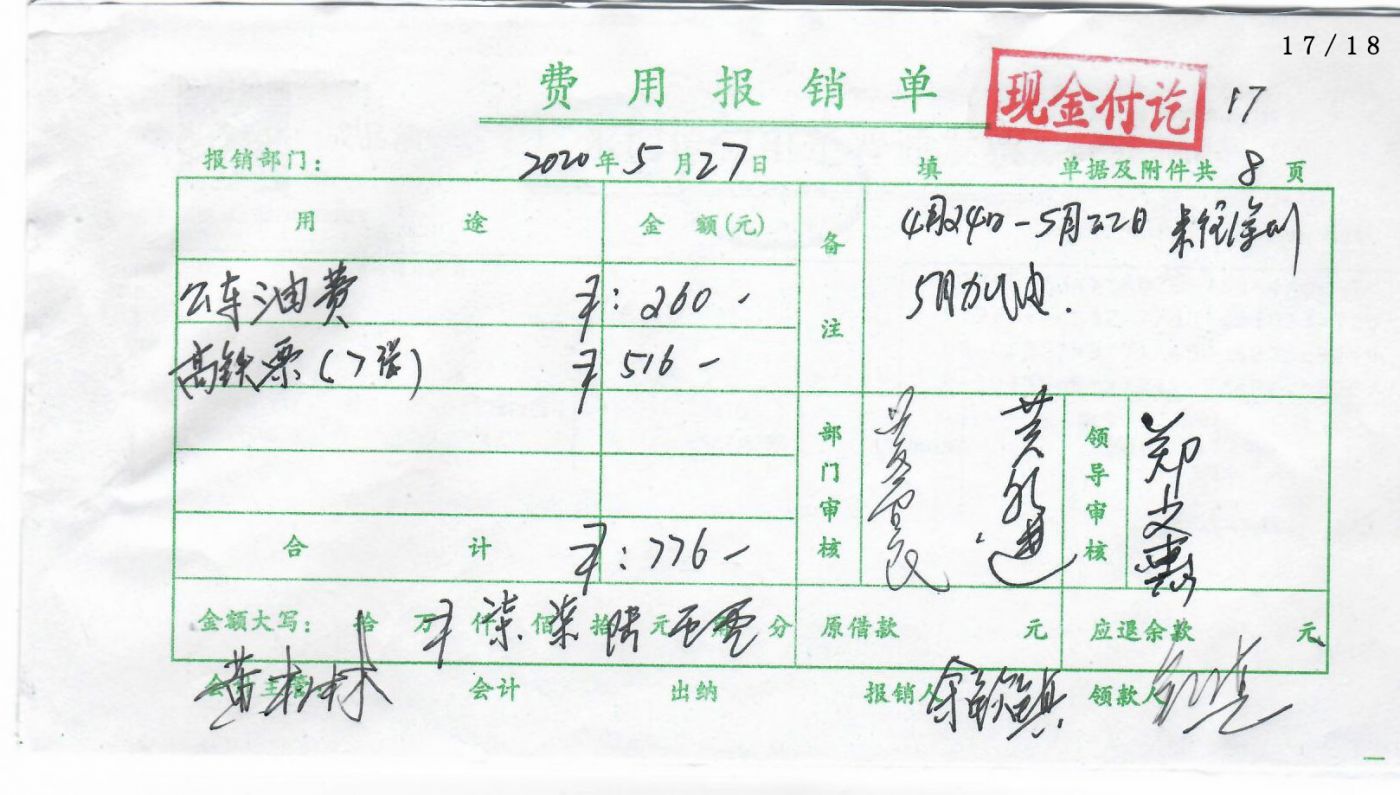 17/18
费用报销单
现金付讫
17
报销部门: 2020年5月27日 填 单据及附件共 8 页
用途 金额(元) 备注 4月24日-5月22日 来往深圳
公车油费 ¥:260-
5月加油.
高铁票(7张) ¥516-
部门审核 领导审核
合计 ¥:776-
金额大写: 拾 万 ¥ 仟 柒 佰 柒 拾 陆 元 角 分 原借款 元 应退余款 元
会计主管 会计 出纳 报销人 领款人